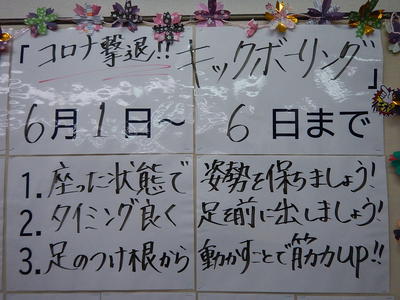 「コロナ撃退!! キックボーリング」
6月1日～6日まで
1.座った状態で 姿勢を保ちましょう!
2.タイミング良く 足を前に出しましょう!
3.足のつけ根から 動かすことで筋力up!!